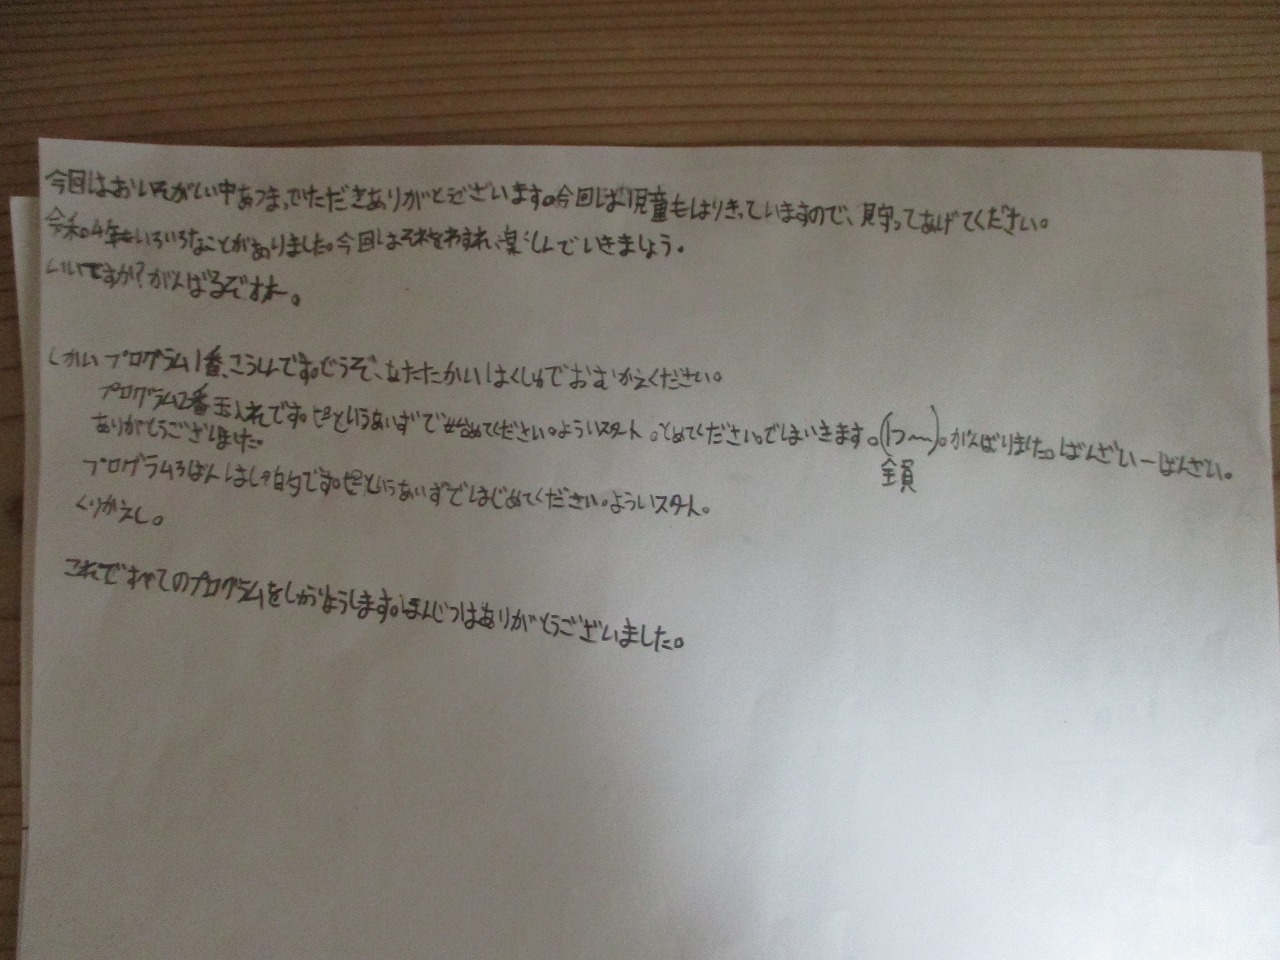 今回はおいそがしい中あつまっていただきありがとうございます。今回は児童もはりきっていますので、見守ってあげてください。
令和4年もいろいろなことがありました。今回はそれをわすれ、楽しんでいきましょう。
いいですか?がんばるぞオー。
しかい プログラム1番、こうしんです。どうぞ、あたたかいはくしゅでおむかえください。
プログラム2番玉入れです。ピーというあいずで始めてください。よういスタート。とめてください。ではいきます。(1つ〜)。がんばりました。ばんざいーばんざい。
全員
ありがとうございました。
プログラム3ばんはしです。ピーというあいずではじめてください。よういスタート。
くりかえし。
これですべてのプログラムをしゅうりょうします。ほんじつはありがとうございました。